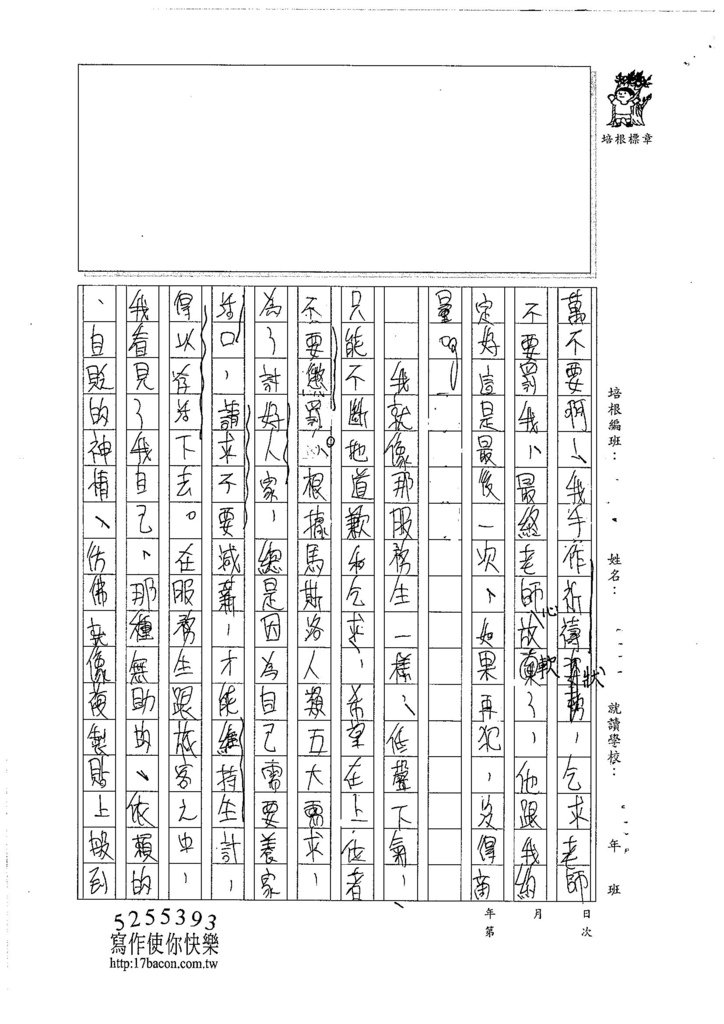 培根標章
培根編班： 姓名： 就讀學校： 年 班
萬不要啊！、我手作祈禱狀，乞求老師
不要罰我，最終老師心軟了，他跟我約
定好這是最後一次，如果再犯，沒得商
量。
我就像那服務生一樣，低聲下氣，
只能不斷地道歉和乞求，希望在上位者
不要懲罰。根據馬斯洛人類五大需求，
為了討好人家，總是因為自己需要養家
活口，請求不要減薪，才能維持生計，
得以存活下去。在服務生跟旅客之中，
我看見了我自己，那種無助的、依賴的
、自貶的神情、彷彿就像複製貼上般到
年 月 日
第 次
5255393
寫作使你快樂
http:17bacon.com.tw